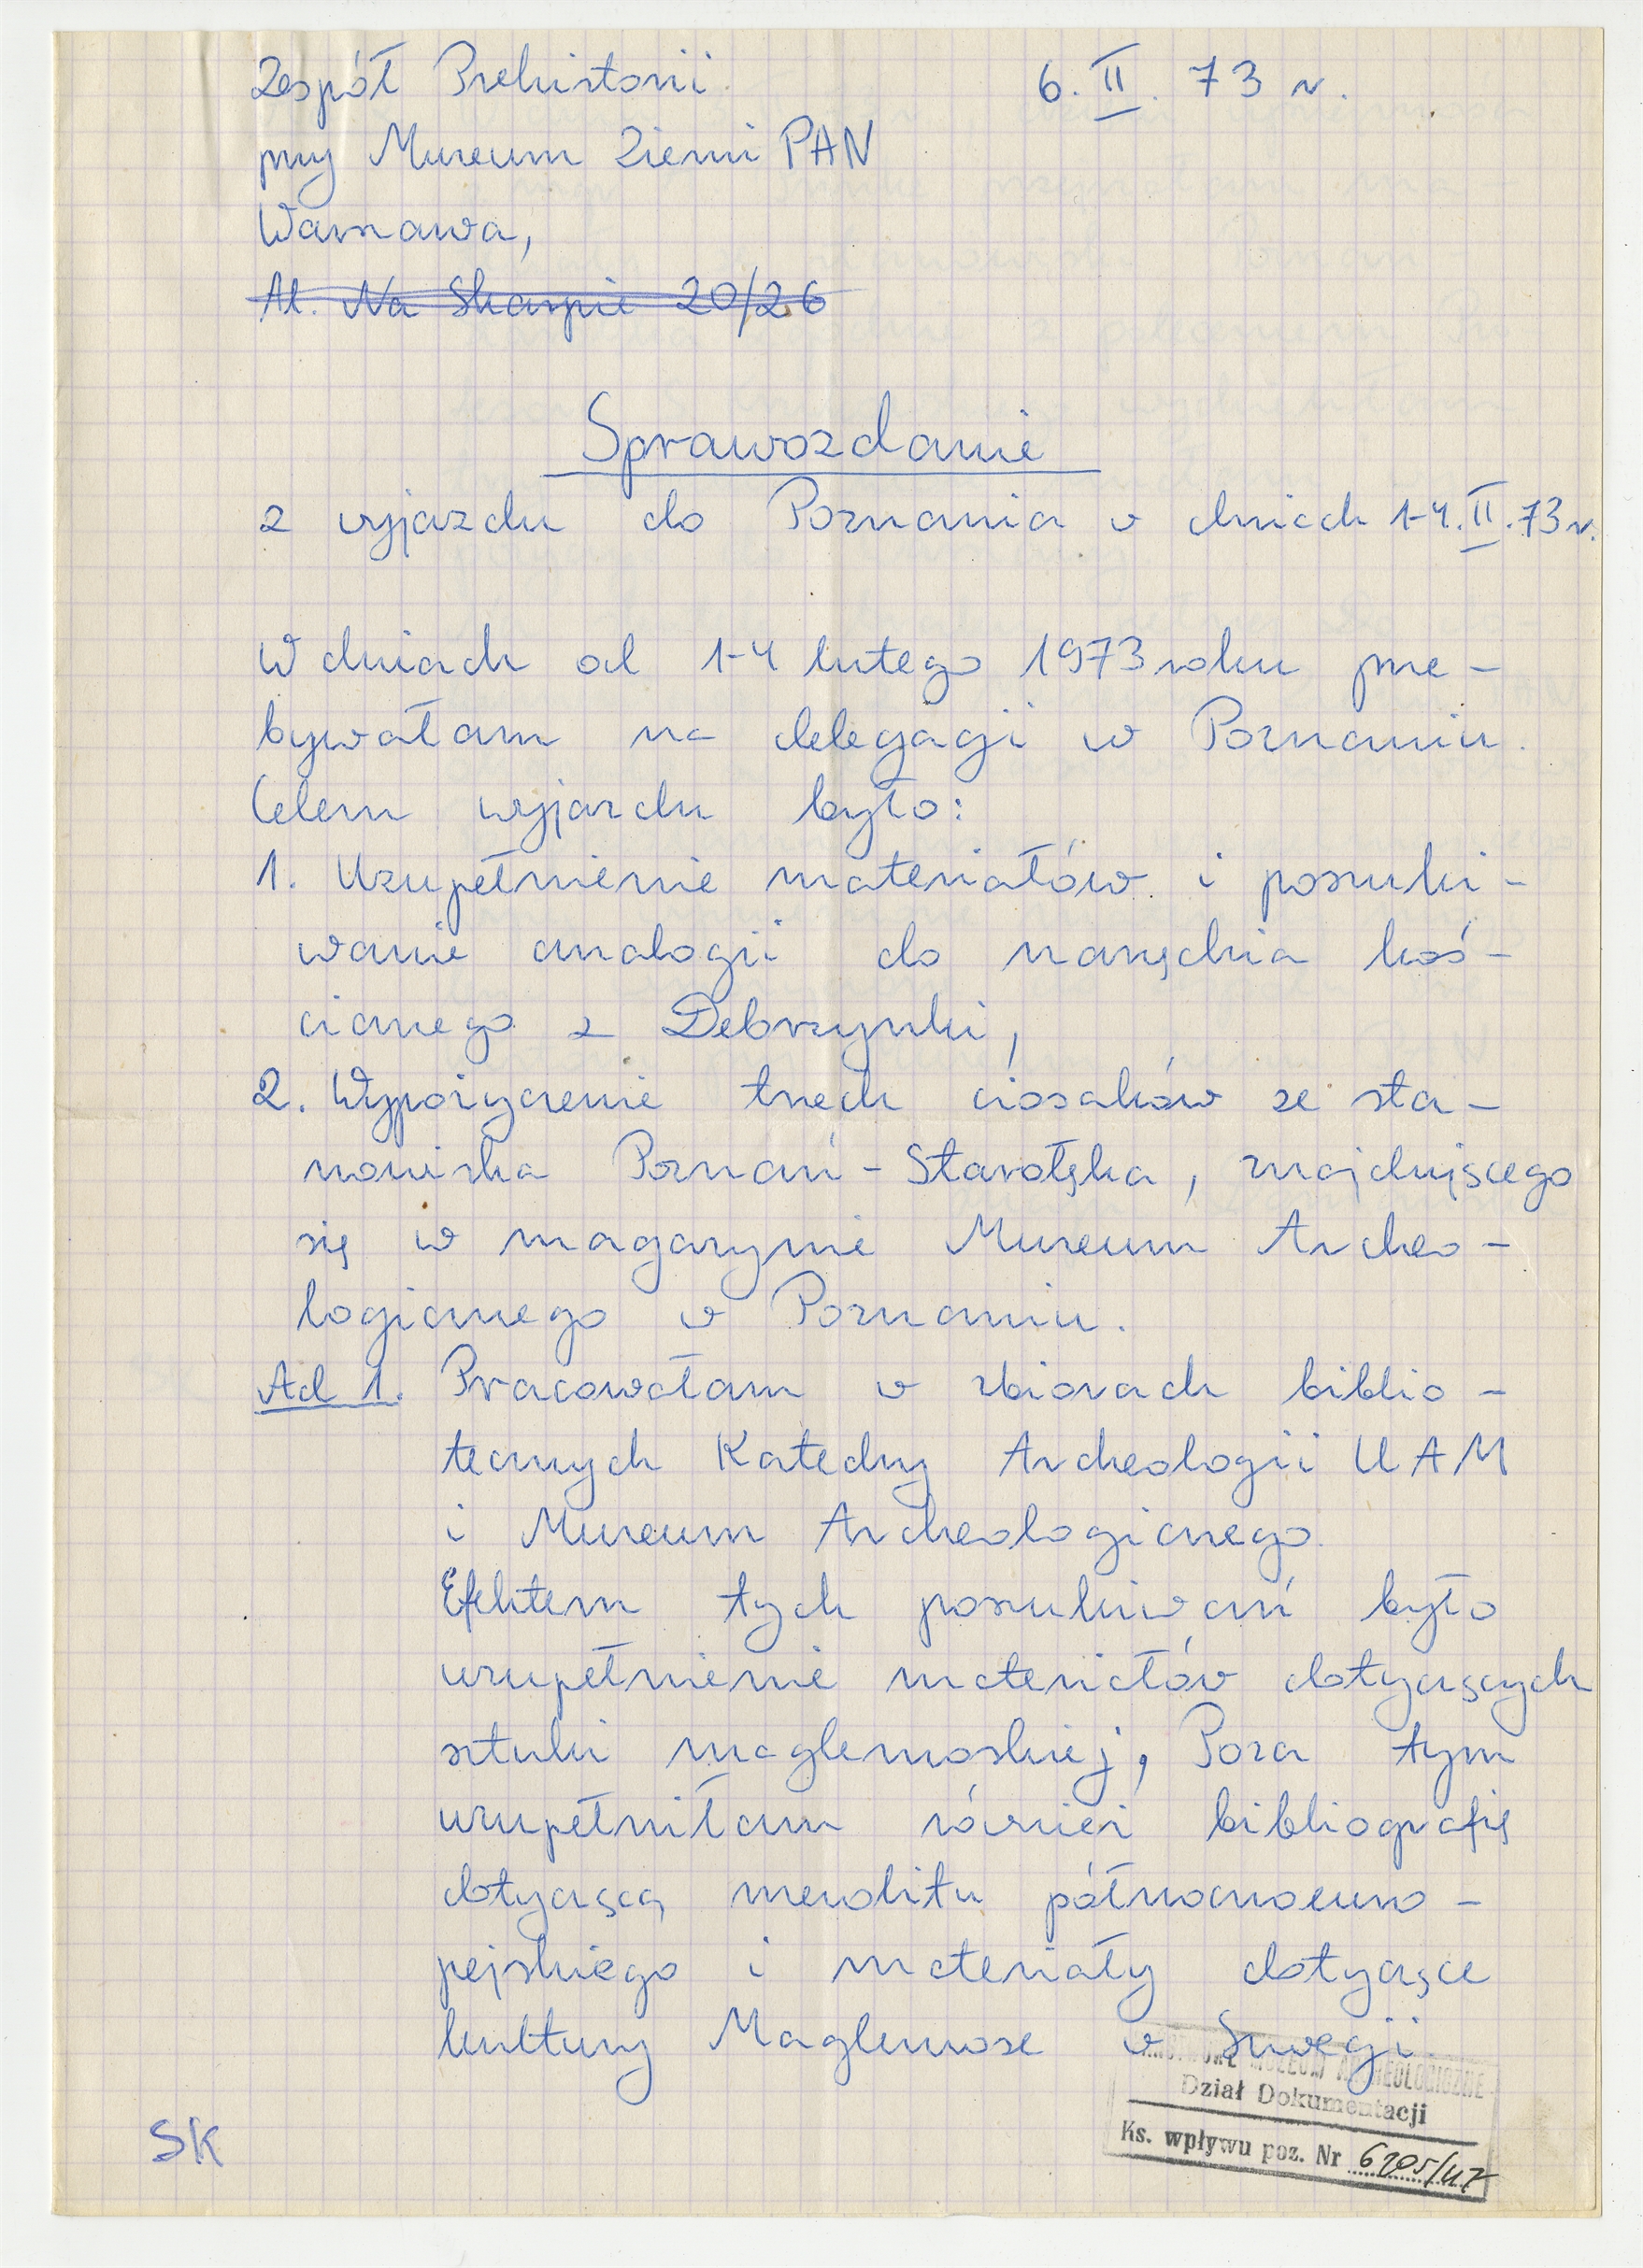 Zespół Prehistorii 6. II. 73 r.
przy Muzeum Ziemi PAN
Warszawa,
Al. Na Skarpie 20/26
Sprawozdanie
z wyjazdu do Poznania w dniach 1-4. II. 73 r.
W dniach od 1-4 lutego 1973 roku prze-
bywałam na delegacji w Poznaniu.
Celem wyjazdu było:
1. Uzupełnienie materiałów i poszuki-
wanie analogii do narzędzia koś-
cianego z Debrzynki,
2. Wypożyczenie trzech ciosaków ze sta-
nowiska Poznań - Starołęka, znajdującego
się w magazynie Muzeum Archeo-
logicznego w Poznaniu.
Ad 1. Pracowałam w zbiorach biblio-
tecznych Katedry Archeologii UAM
i Muzeum Archeologicznego.
Efektem tych poszukiwań było
uzupełnienie materiałów dotyczących
sztuki maglemoskiej, Poza tym
uzupełniłam również bibliografię
dotyczącą mezolitu północnoeuro-
pejskiego i materiały dotyczące
kultury Maglemose w Szwecji.
PAŃSTWOWE MUZEUM ARCHEOLOGICZNE
Dział Dokumentacji
Ks. wpływu poz. Nr 6205/47
SK